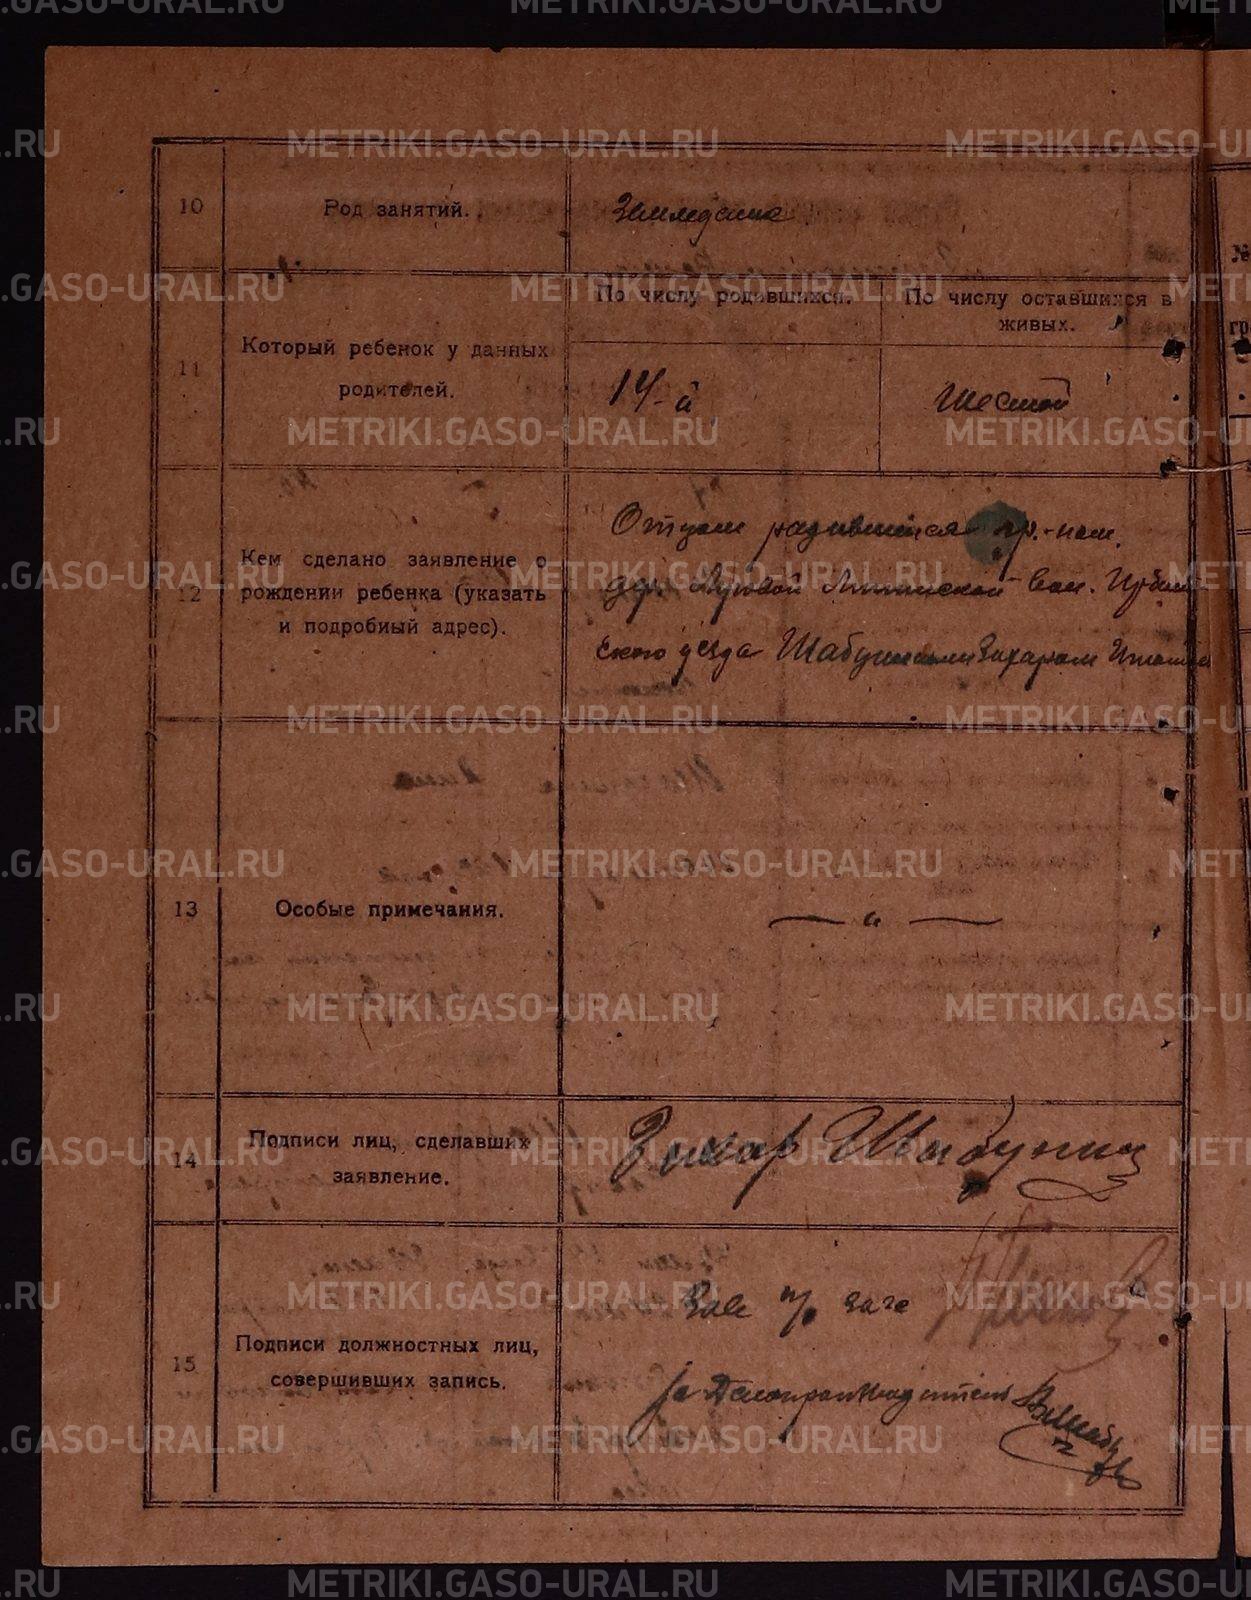 10
Род занятий.
Земледелие
11
Который ребенок у данных
родителей.
По числу родившихся.
По числу оставшихся в
живых.
14-й
Шестой
12
Кем сделано заявление о
рождении ребенка (указать
и подробный адрес).
Отцом родившегося гр.-ном.
дер. Луговой вол. Ирбит
ского уезда Шабуниным Захаром
13
Особые примечания.
— „ —
14
Подписи лиц, сделавших
заявление.
Захар Шабунин
15
Подписи должностных лиц,
совершивших запись.
Зав. п/о загс
за Делопроизводитель
METRIKI.GASO-URAL.RU